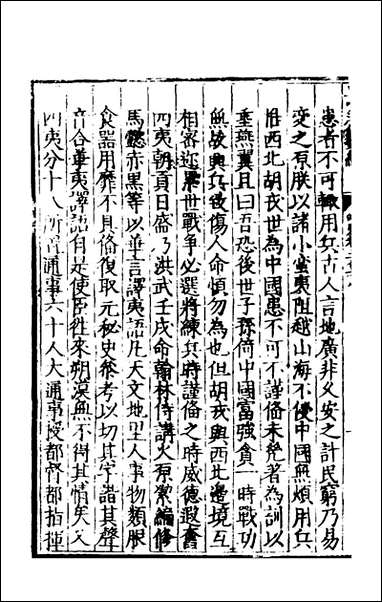 患者不可輙用兵古人言地廣非久安之計民窮乃易
變之原朕以諸小蠻夷阻越山海不侵中國無煩用兵
惟西北胡戎世為中國患不可不謹備未幾著為訓以
垂燕冀且曰吾恐後世子孫倚中國富強貪一時戰功
無故興兵致傷人命慎勿為也但胡戎與西北邊境互
相密邇累世戰爭必選將練兵時謹備之時威德遐
四夷朝貢日盛乃洪武壬戌命翰林侍講火原潔編修
馬懿赤黑等以華言譯夷語凡天文地理人事物類服
食器用靡不具備復取元秘史參考以切其字諧其聲
音合華夷譯語自是使臣徃來朔漠無不得其情矣又
四夷分十八所音通事六十人大通事授都督都指揮